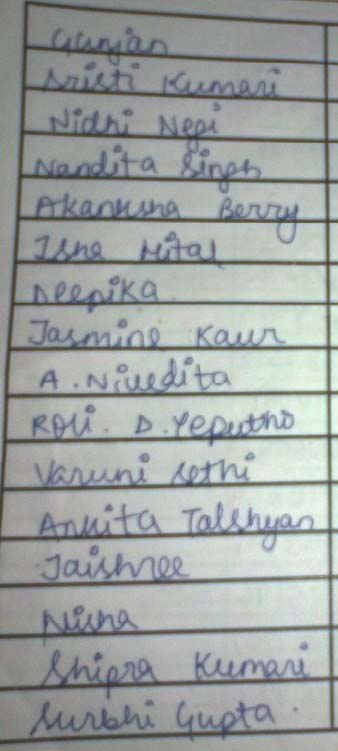 Gunjan
Sristi Kumari
Nidhi Negi
Nandita Singh
Akanksha Berry
Isha Mital
Deepika
Jasmine Kaur
A. Nivedita
Roli. D. Yeputho
Varuni Sethi
Ankita Talshyan
Jaishree
Nisha
Shipra Kumari
Surbhi Gupta.